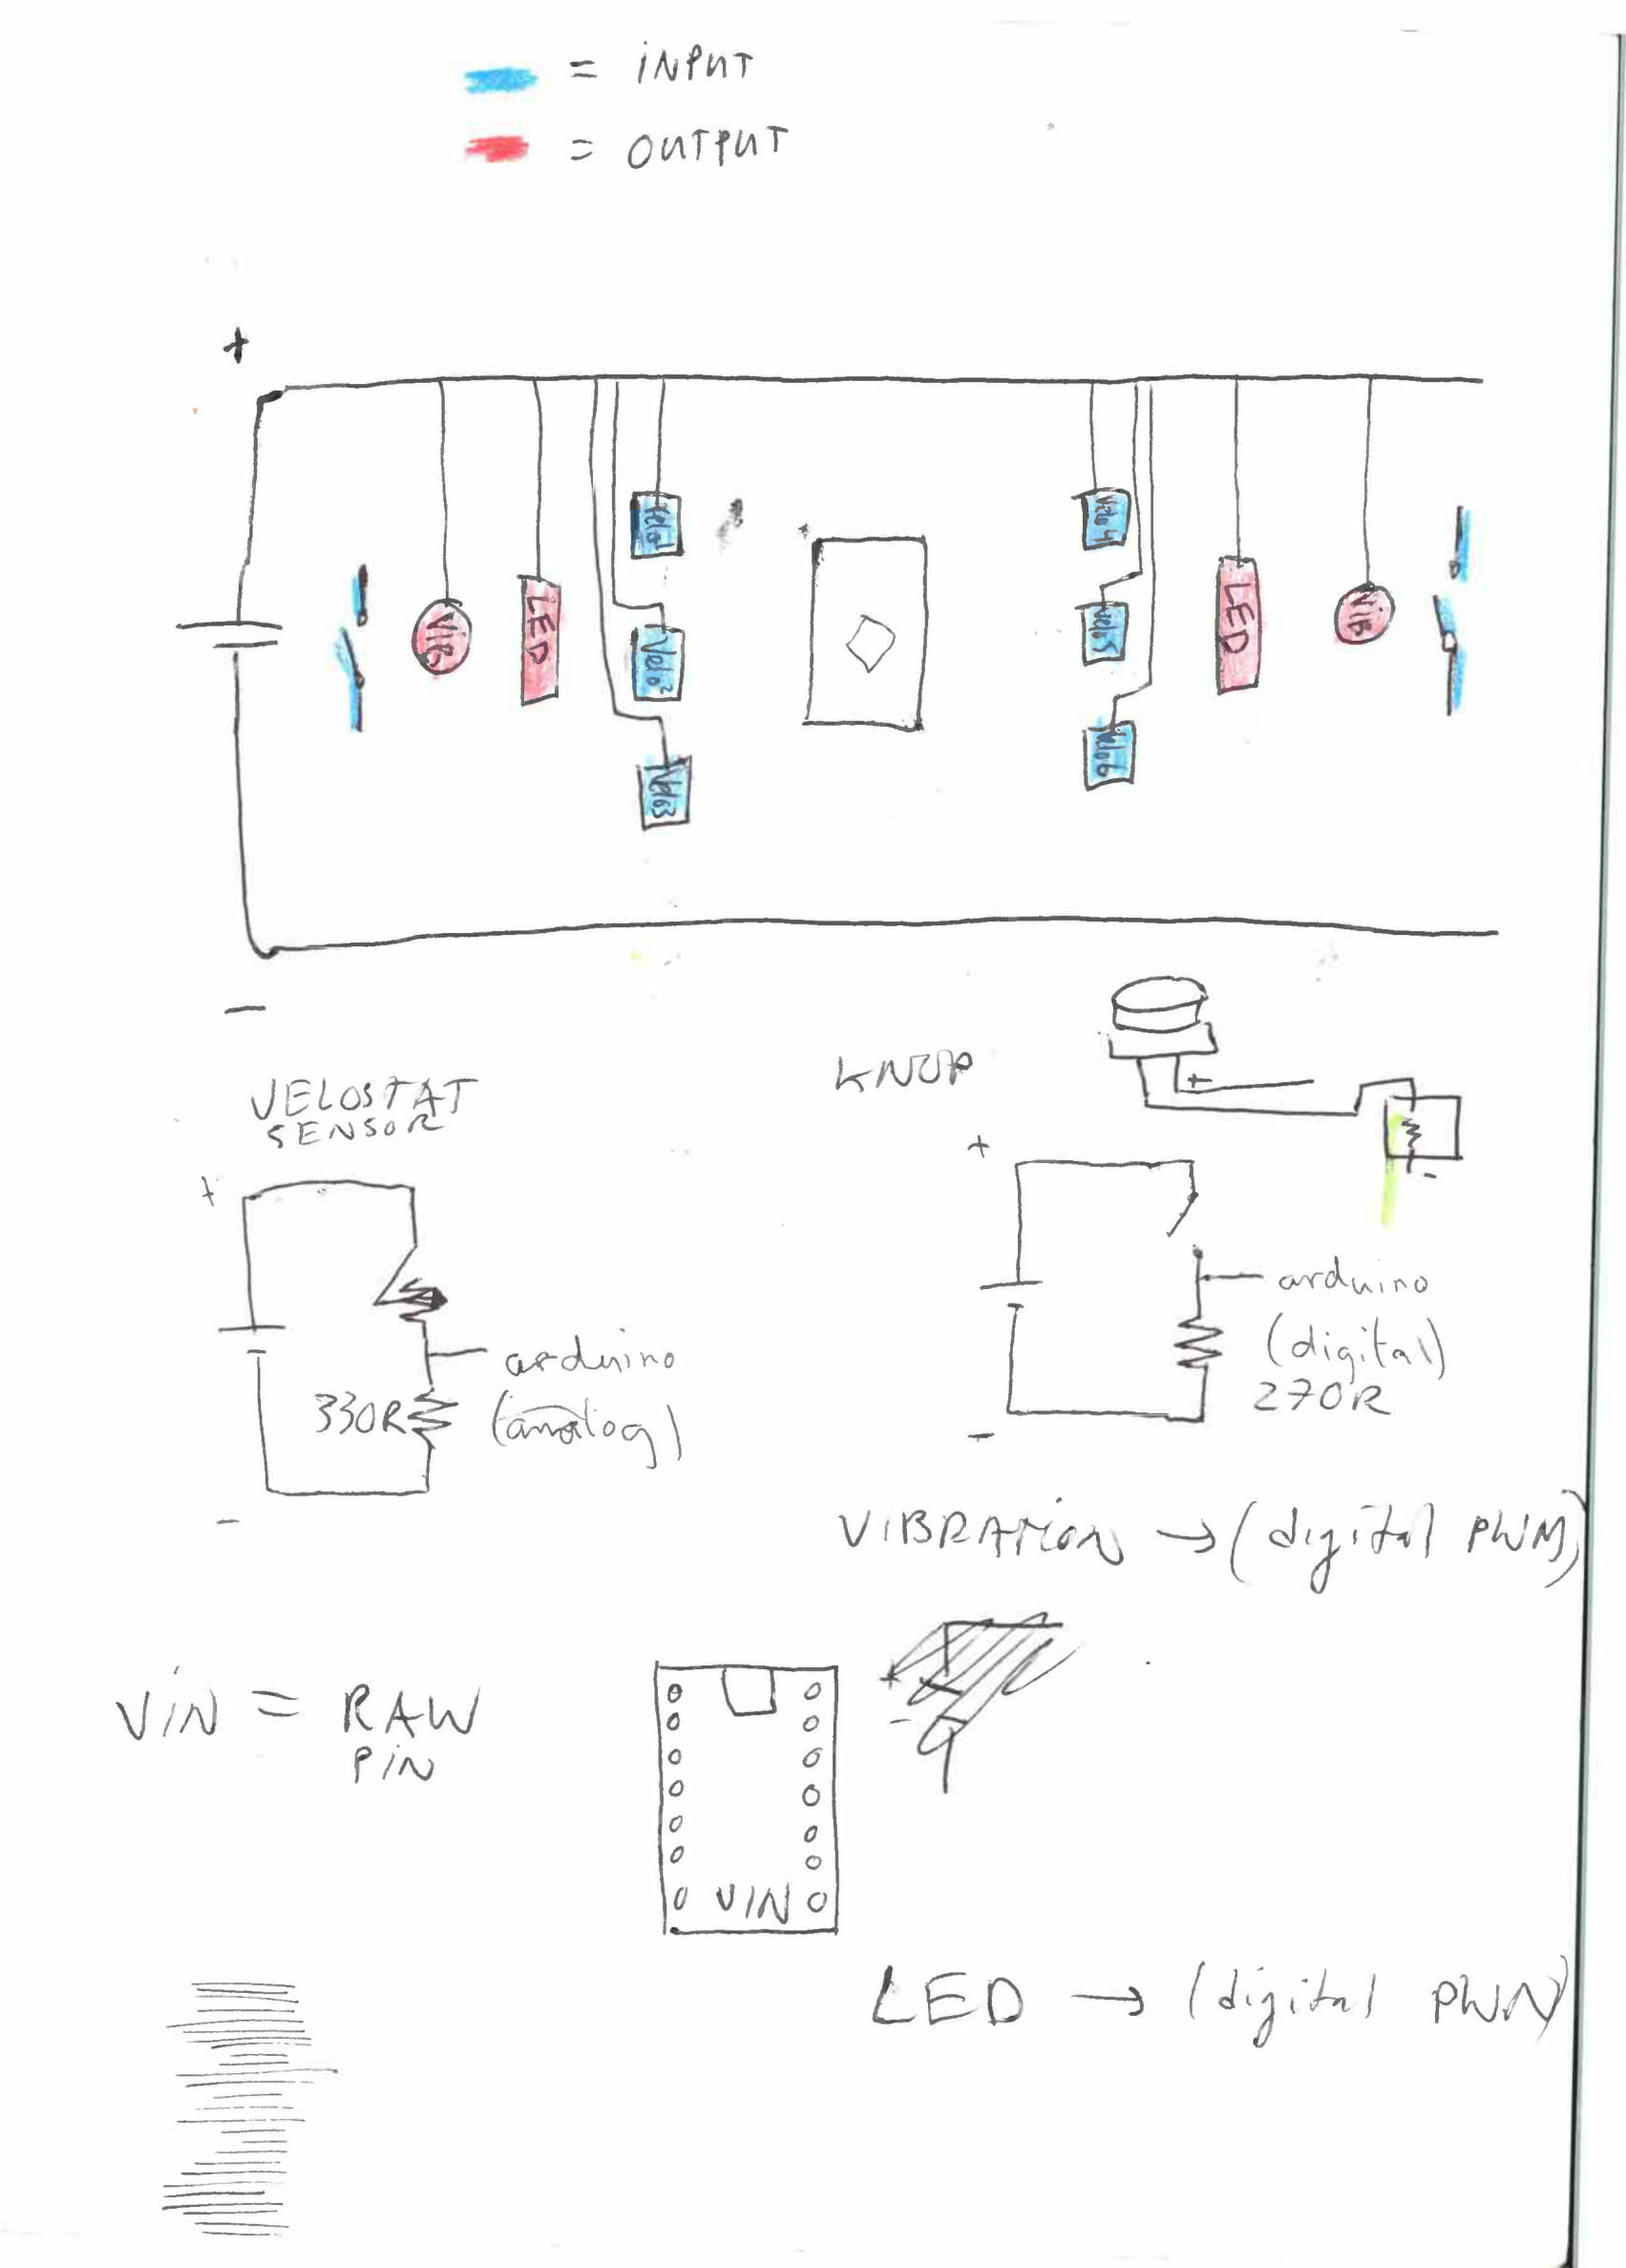 = INPUT
= OUTPUT
+
Velo1
Velo4
VIB
LED
Velo2
Velo5
LED
VIB
Velo3
Velo6
-
VELOSTAT
SENSOR
KNOP
+
-
+
+
arduino
(digital)
270R
arduino
(analog)
330R
-
-
VIBRATION → (digital PWM)
+
-
VIN = RAW
PIN
VIN
LED → (digital PWN)